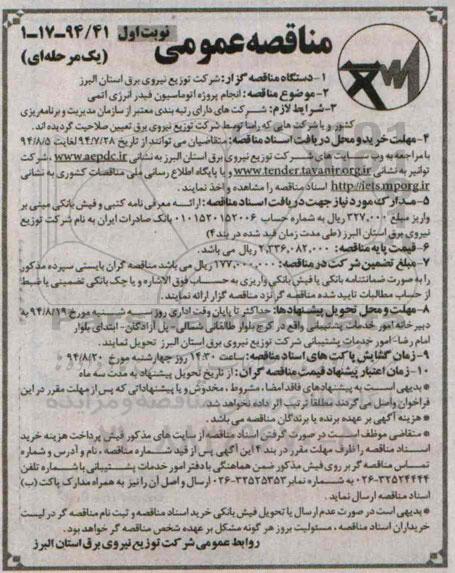 مناقصه عمومی نوبت اول ۹۴/۴۱-۱۷-۱
(یک مرحله ای)
۱-دستگاه مناقصه گزار: شرکت توزیع نیروی برق استان البرز
۲-موضوع مناقصه: انجام پروژه اتوماسیون فیدر انرژی اتمی
۳-شرایط لازم: شرکت های دارای رتبه بندی معتبر از سازمان مدیریت و برنامه ریزی
کشور و یا شرکت هایی که راسا توسط شرکت توزیع نیروی برق تعیین صلاحیت گردیده اند.
۴-مهلت خرید و محل دریافت اسناد مناقصه: متقاضیان می توانند از تاریخ ۹۴/۷/۲۸ لغایت ۹۴/۸/۵
با مراجعه به وب سایت های شرکت توزیع نیروی برق استان البرز به نشانی www.aepdc.ir ، شرکت
توانیر به نشانی www.tender.tavanir.org.ir و یا پایگاه اطلاع رسانی ملی مناقصات کشوری به نشانی
http://iets.mporg.ir اسناد مناقصه را مشاهده و اخذ نمایند.
۵-مدارک مورد نیاز جهت دریافت اسناد مناقصه: ارائه معرفی نامه کتبی و فیش بانکی مبنی بر
واریز مبلغ ۳۲۷,۰۰۰ ریال به شماره حساب ۰۱۰۱۵۲۰۱۵۲۰۰۶ بانک صادرات ایران به نام شرکت توزیع
نیروی برق استان البرز (طی مدت زمان قید شده در بند ۴)
۶-قیمت پایه مناقصه: ۲,۳۳۶,۰۸۲,۰۰۰ ریال می باشد.
۷-مبلغ تضمین شرکت در مناقصه: ۱۷۷,۰۰۰,۰۰۰ ریال می باشد مناقصه گران بایستی سپرده مذکور
را به صورت ضمانتنامه بانکی یا فیش بانکی واریزی به حساب فوق الاشاره و یا چک بانکی تضمینی یا ضبط
از حساب مطالبات تایید شده مناقصه گر نزد مناقصه گزار ارائه نمایند.
۸-مهلت و محل تحویل پیشنهادها: حداکثر تا پایان وقت اداری روز سه شنبه مورخ ۹۴/۸/۱۹ به
دبیرخانه امور خدمات پشتیبانی واقع در کرج بلوار طالقانی شمالی- پل آزادگان- ابتدای بلوار
امام رضا- امور خدمات پشتیبانی شرکت توزیع نیروی برق استان البرز تحویل نمایند.
۹-زمان گشایش پاکت های اسناد مناقصه: ساعت ۱۴:۳۰ روز چهارشنبه مورخ ۹۴/۸/۲۰
۱۰-زمان اعتبار پیشنهاد قیمت مناقصه گران: از تاریخ تحویل پیشنهاد به مدت سه ماه
* بدیهی است به پیشنهادهای فاقد امضاء، مشروط، مخدوش و یا پیشنهاداتی که پس از مهلت مقرر در این
فراخوان واصل می گردند مطلقا ترتیب اثر داده نخواهد شد.
* هزینه آگهی بر عهده برنده یا برندگان مناقصه می باشد.
* متقاضی موظف است در صورت گرفتن اسناد مناقصه از سایت های مذکور فیش پرداخت هزینه خرید
اسناد مناقصه را ظرف مهلت مقرر در بند ۴ این آگهی پس از قید شماره مناقصه، نام و آدرس و شماره
تماس مناقصه گر بر روی فیش مذکور ضمن هماهنگی با دفتر امور خدمات پشتیبانی با شماره تلفن
۰۲۶-۳۲۵۲۴۴۴۴ به شماره نمابر ۰۲۶-۳۲۵۲۵۳۵۳ ارسال و اصل آن را نیز به همراه مدارک پاکت (ب)
اسناد مناقصه ارسال نماید.
* بدیهی است در صورت عدم ارسال یا تحویل فیش بانکی خرید اسناد مناقصه و ثبت نام مناقصه گر در لیست
خریداران اسناد مناقصه، مسئولیت بروز هر گونه مشکل بر عهده شخص مناقصه گر خواهد بود.
روابط عمومی شرکت توزیع نیروی برق استان البرز